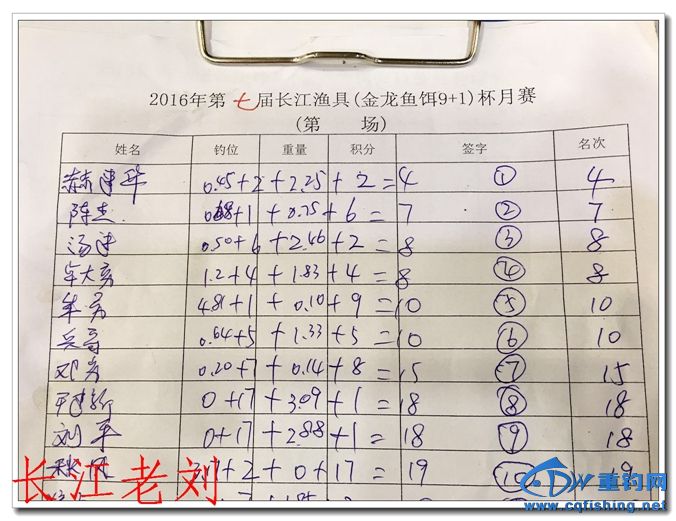 2016年第七届长江渔具(金龙鱼饵9+1)杯月赛
(第 场)
姓名 钓位 重量 积分 签字 名次
赫建华 0.45+2+2.25+2=4 ① 4
陈杰 +1+0.75+6=7 ② 7
汤建 0.50+6+2.46+2=8 ③ 8
牟大勇 1.2+4+1.83+4=8 ④ 8
牟勇 4.81+1+0.10+9=10 ⑤ 10
兵哥 0.64+5+1.33+5=10 ⑥ 10
邓勇 0.20+7+0.14+8=15 ⑦ 15
0+17+3.09+1=18 ⑧ 18
刘平 0+17+2.88+1=18 ⑨ 18
+2+0+17=19 ⑩ 19
长江老刘
重钓网
www.cqfishing.net